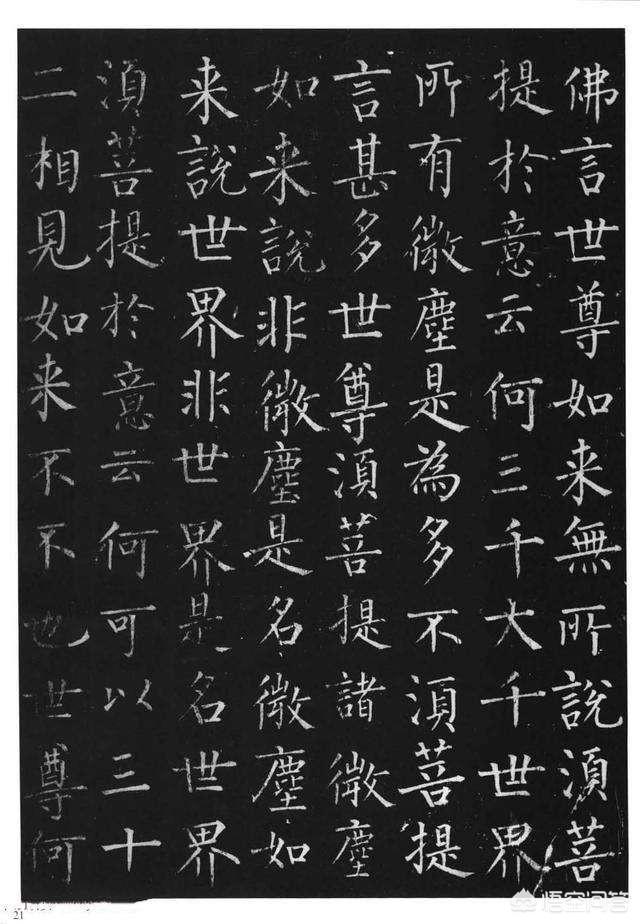 佛言世尊如来無所說湏菩
提於意云何三千大千世界
所有微塵是為多不湏菩提
言甚多世尊湏菩提諸微塵
如来說非微塵是名微塵如
来說世界非世界是名世界
湏菩提於意云何可以三十
二相見如来不不也世尊何
21
悟空问答